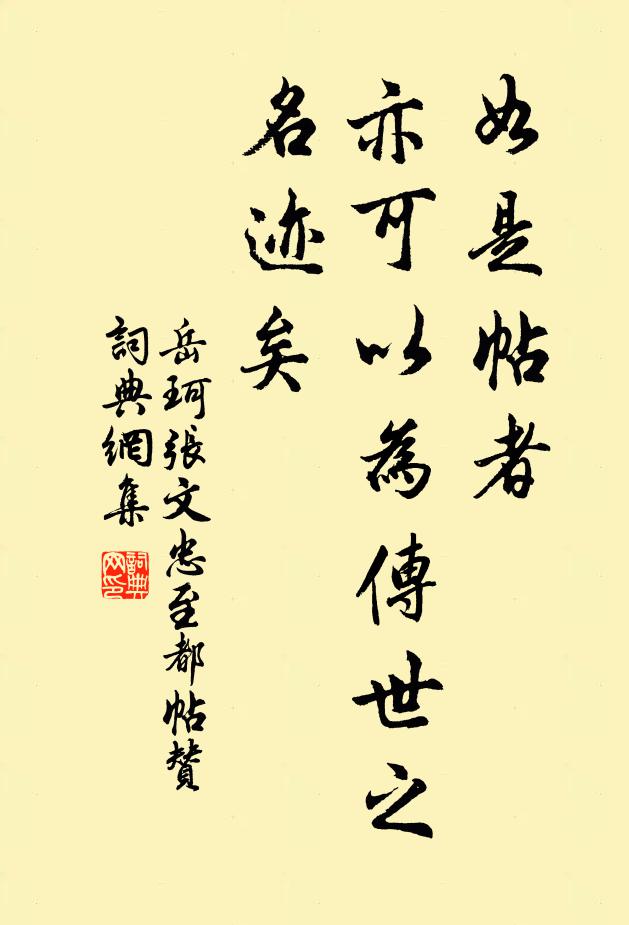 如是帖者
亦可以為傳世之
名迹矣
岳珂張文忠至都帖贊
詞典網集
詞典網印